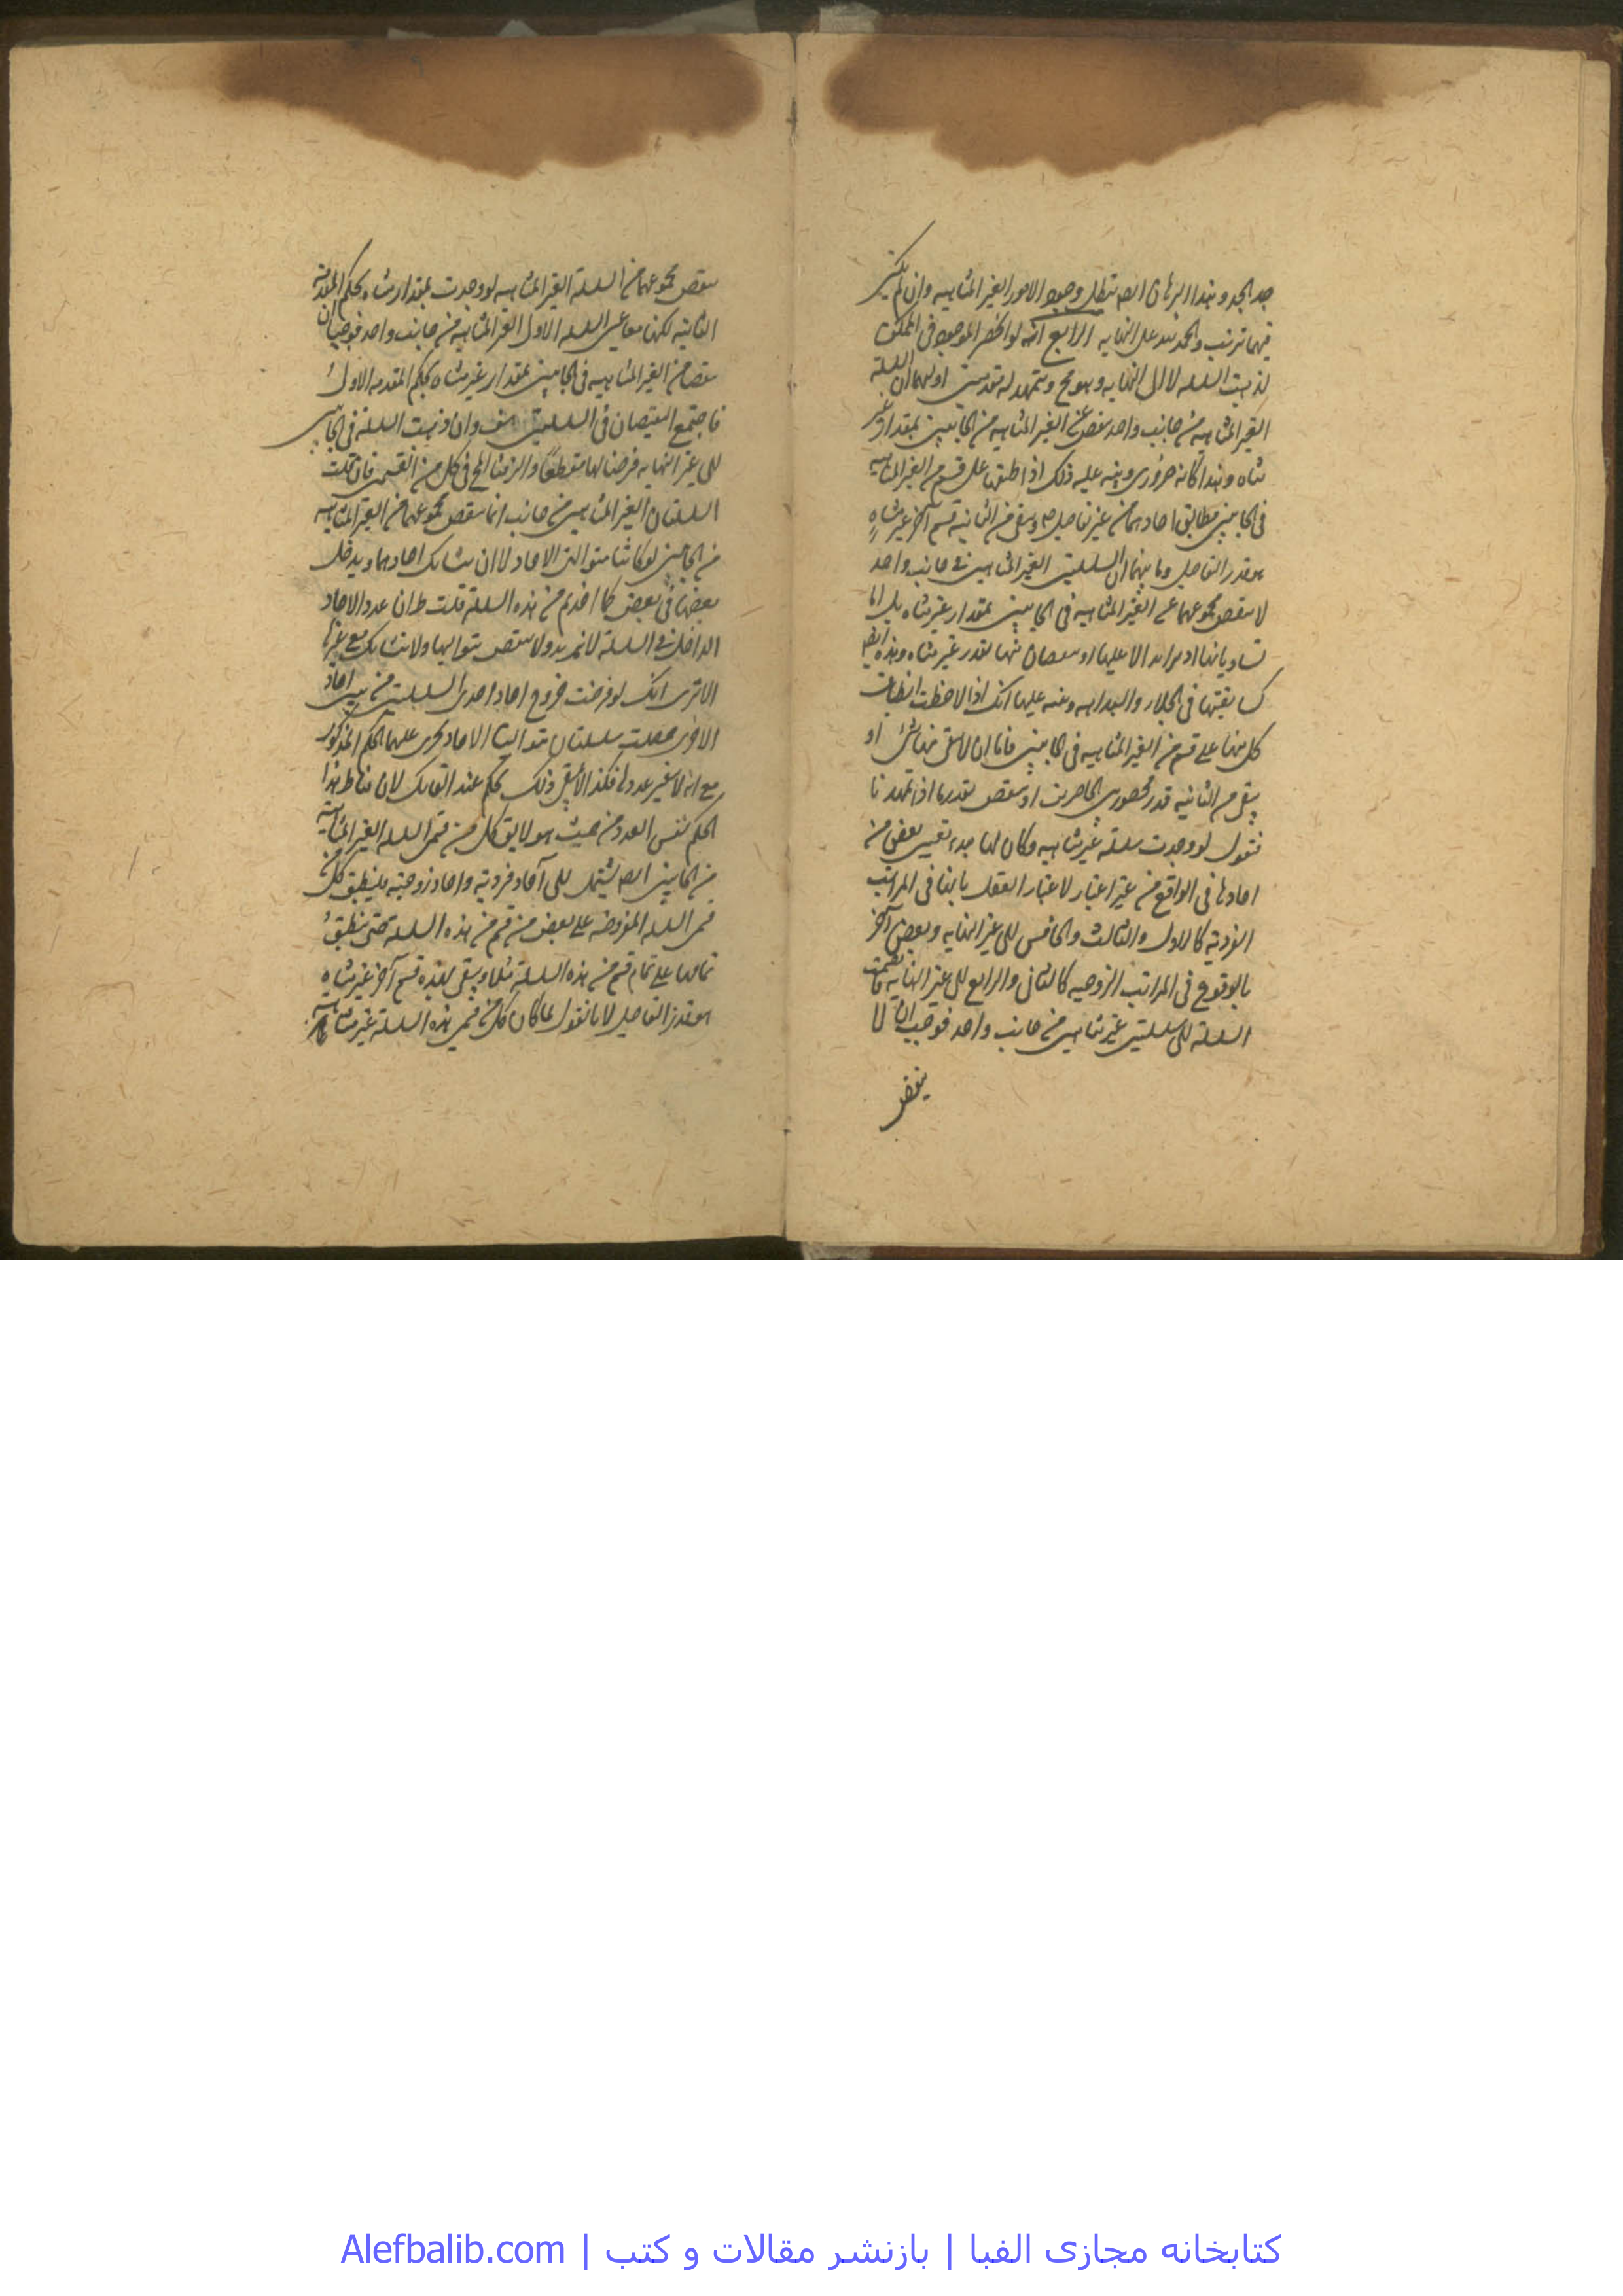 جد الجد وبهذا البرهان ايضا يبطل وجود الامور الغير المتناهيه وان لم يكن
فيها ترتب والحمد لله على انهائه الرابع انه لو انحصر الموجود في الممكن
لذهبت السلسله لا الى النهايه وهو مح وتمهد له مقدمتين اوليهما ان السلسلة
الغير المتناهيه من جانب واحد ينقص عن الغير المتناهيه من الجانبين بمقدار غير
متناه وهذا كانه ضروري وينبه عليه ذلك اذا طبقها على قسم من الغير المتناهيه
في الجانبين يطابق احادهما من غير تفاضل ويبقى من الثانيه قسم آخر غير متناه
هو قدر التفاضل وثانيهما ان السلسلتين الغير المتناهيتين من جانب واحد
لا ينقص مجموعهما عن الغير المتناهيه في الجانبين بمقدار غير متناه بل اما
تساويانها او ينقصان منها بقدر غير متناه وهذه ايضا
كسابقتها في الجلاء والبداهه وينبه عليها انك اذا لاحظت انطباق
كل منها على قسم من الغير المتناهيه في الجانبين فاما ان لا يبقى منها شئ او
يبقى من الثانيه قدر محصور بين الحاصرين او ينقص بقدرها اذا تمهدتا
فنقول لو وجدت سلسلة غير متناهيه وكان لها مبدء تعيين بعض من
احادها في الواقع من غير اعتبار لاعتبار العقل بانها في المراتب
الفرديه كالاول والثالث والخامس الى غير النهايه وبعض آخر
بالوقوع في المراتب الزوجيه كالثاني والرابع الى غير النهايه فانقسمت
السلسلة الى سلسلتين غير متناهيتين من جانب واحد فوجب ان لا
ينقص
ينقص مجموعهما من السلسلة الغير المتناهيه لو وجدت بمقدار متناه بحكم المقدمة
الثانيه لكنهما معا عين السلسله الاولى الغير المتناهيه من جانب واحد فوجب ان
ينقصا من الغير المتناهيه في الجانبين بمقدار غير متناه بحكم المقدمه الاولى
فاجتمع النقيضان في السلسلتين هف وان ذهبت السلسلة في الجانبين
الى غير النهايه فرضنا لها مقطعا والزمنا المح في كل من القسمين فان قلت
السلسلتان الغير المتناهيتين من جانب انما ينقص مجموعهما من الغير المتناهيه
من الجانبين لو كانتا متواليتي الاحاد لا ان يتشابك احادهما ويدخل
بعضها في بعض كما اخذتم من هذه السلسلة قلت ان عدد الاحاد
الداخله في السلسلة لا يزيد ولا ينقص بتواليها ولا تشابك مع غيرها
الا ترى انك لو فرضت خروج احاد احدى السلسلتين من بين احاد
الاخرى حصلت سلسلتان متواليتا الاحاد يجرى عليهما الحكم المذكور
مع انه لا تغير عددها فكذا ذلك الحكم عند التشابك لان مناط هذا
الحكم نفس العدد من حيث هو لا يق كل من قسمى السلسله الغير المتناهيه
من الجانبين ايضا يشتمل على آحاد فرديه واحاد زوجيه فلينطبق كل من
قسمى السلسله المفروضه على بعض من قسم من هذه السلسله حتى ينطبق
تمامها على تمام قسم من هذه السلسلة مثلا ويبقى لهذه قسم آخر غير متناه
هو قدر التفاضل لانا نقول لما كان كل من قسمى هذه السلسلة غير متناهيه
کتابخانه مجازی الفبا | بازنشر مقالات و کتب | Alefbalib.com